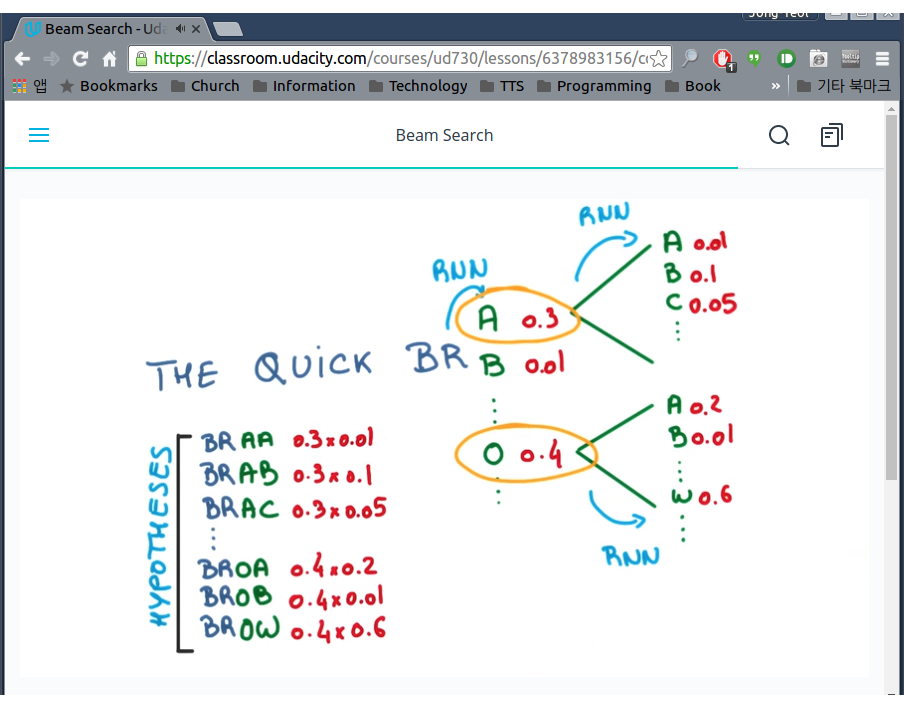 Jong Yeol
Beam Search - Uda
https://classroom.udacity.com/courses/ud730/lessons/6378983156/c
1
앱 Bookmarks Church Information Technology TTS Programming Book » 기타 북마크
Beam Search
RNN
A 0.01
B 0.1
C 0.05
⋮
RNN
A 0.3
THE QUICK BR B 0.01
⋮
O 0.4
⋮
A 0.2
B 0.01
⋮
W 0.6
⋮
RNN
HYPOTHESES
BRAA 0.3x0.01
BRAB 0.3x0.1
BRAC 0.3x0.05
⋮
BROA 0.4x0.2
BROB 0.4x0.01
BROW 0.4x0.6